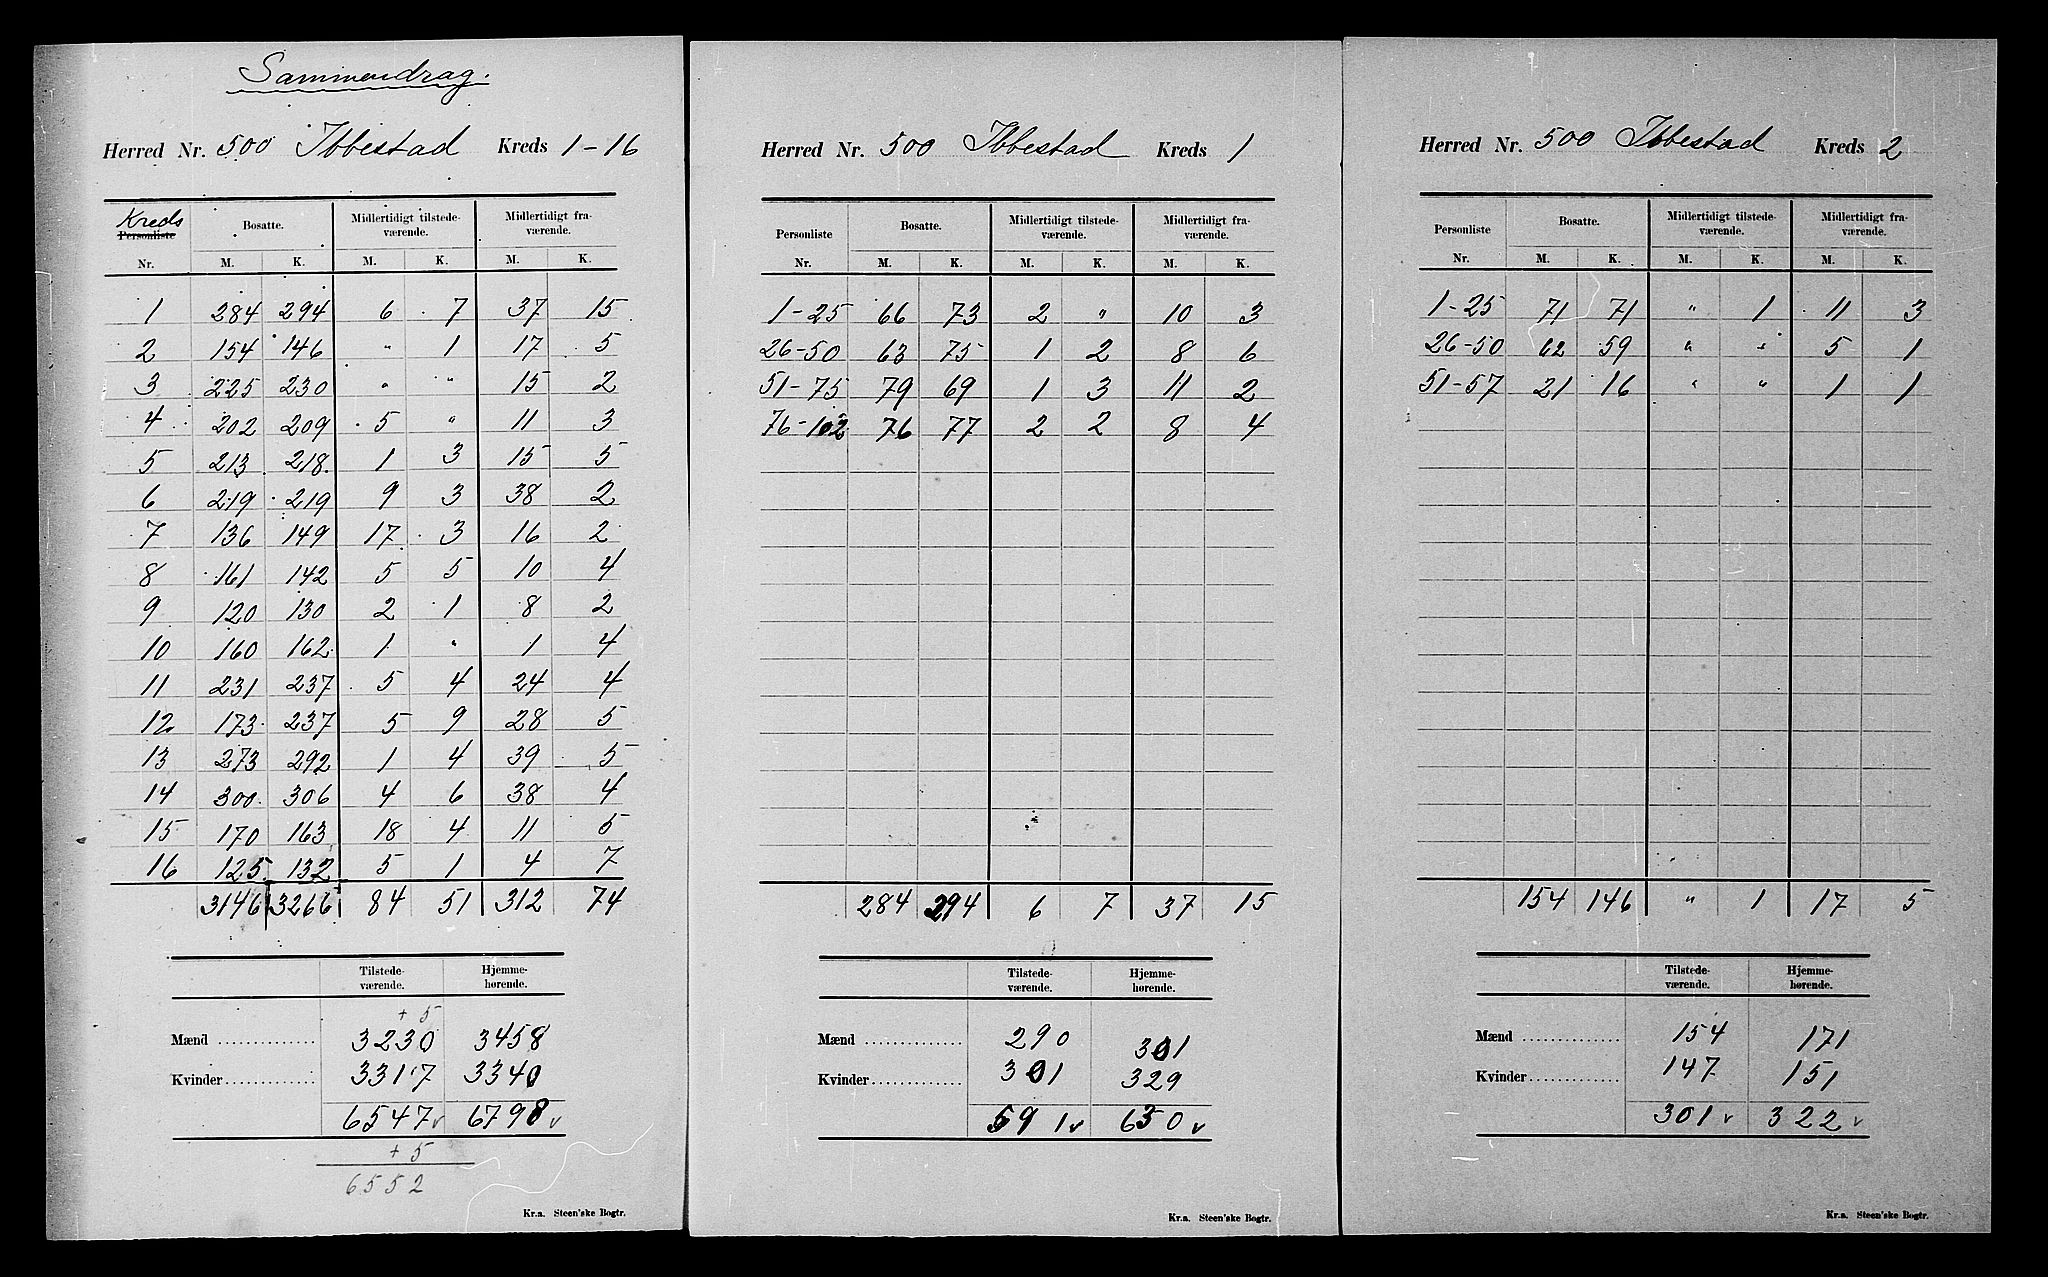 Sammendrag.
Herred Nr. 500 Ibbestad Kreds 1-16
Kreds
Personliste Bosatte. Midlertidigt tilstede- Midlertidigt fra-
værende. værende.
Nr. M. K. M. K. M. K.
1 284 294 6 7 37 15
2 154 146 " 1 17 5
3 225 230 " " 15 2
4 202 209 5 " 11 3
5 213 218 1 3 15 5
6 219 219 9 3 38 2
7 136 149 17 3 16 2
8 161 142 5 5 10 4
9 120 130 2 1 8 2
10 160 162 1 " 1 4
11 231 237 5 4 24 4
12 173 237 5 9 28 5
13 273 292 1 4 39 5
14 300 306 4 6 38 4
15 170 163 18 4 11 5
16 125 132 5 1 4 7
3146 3266 84 51 312 74
Tilstede- Hjemme-
værende. hørende.
+ 5
Mænd 3230 3458
Kvinder 3317 3340
6547 v 6798 v
+ 5
6552
Kr.a. Steen'ske Bogtr.
Herred Nr. 500 Ibbestad Kreds 1
Personliste Bosatte. Midlertidigt tilstede- Midlertidigt fra-
værende. værende.
Nr. M. K. M. K. M. K.
1-25 66 73 2 " 10 3
26-50 63 75 1 2 8 6
51-75 79 69 1 3 11 2
76-102 76 77 2 2 8 4
284 294 6 7 37 15
Tilstede- Hjemme-
værende. hørende.
Mænd 290 301
Kvinder 301 329
591 v 630 v
Kr.a. Steen'ske Bogtr.
Herred Nr. 500 Ibbestad Kreds 2
Personliste Bosatte. Midlertidigt tilstede- Midlertidigt fra-
værende. værende.
Nr. M. K. M. K. M. K.
1-25 71 71 " 1 11 3
26-50 62 59 " " 5 1
51-57 21 16 " " 1 1
154 146 " 1 17 5
Tilstede- Hjemme-
værende. hørende.
Mænd 154 171
Kvinder 147 151
301 v 322 v
Kr.a. Steen'ske Bogtr.